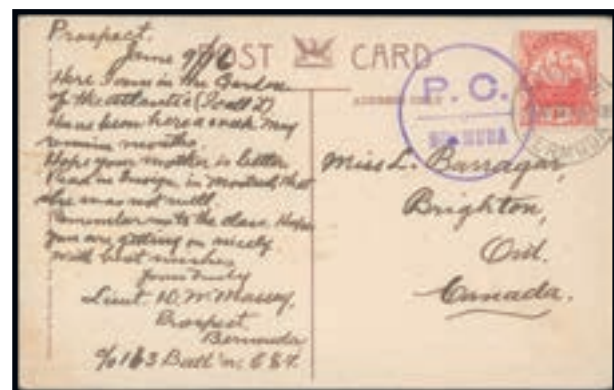 Prospect.
June 9/16
POST CARD
Here I am in the Garden
of the Atlantic (I call it)
Have been here a week May
remain months.
Hope your mother is better
Read in Ensign in Montreal that
she was not well.
Remember me to the class. Hope
you are getting on nicely
With best wishes
Yours Truly
Lieut D. W. Massey,
Prospect
Bermuda
c/o 163 Batt'n. C.E.F.
P. C.
BERMUDA
BERMUDA
Miss L. Barragar,
Brighton,
Ont.
Canada.